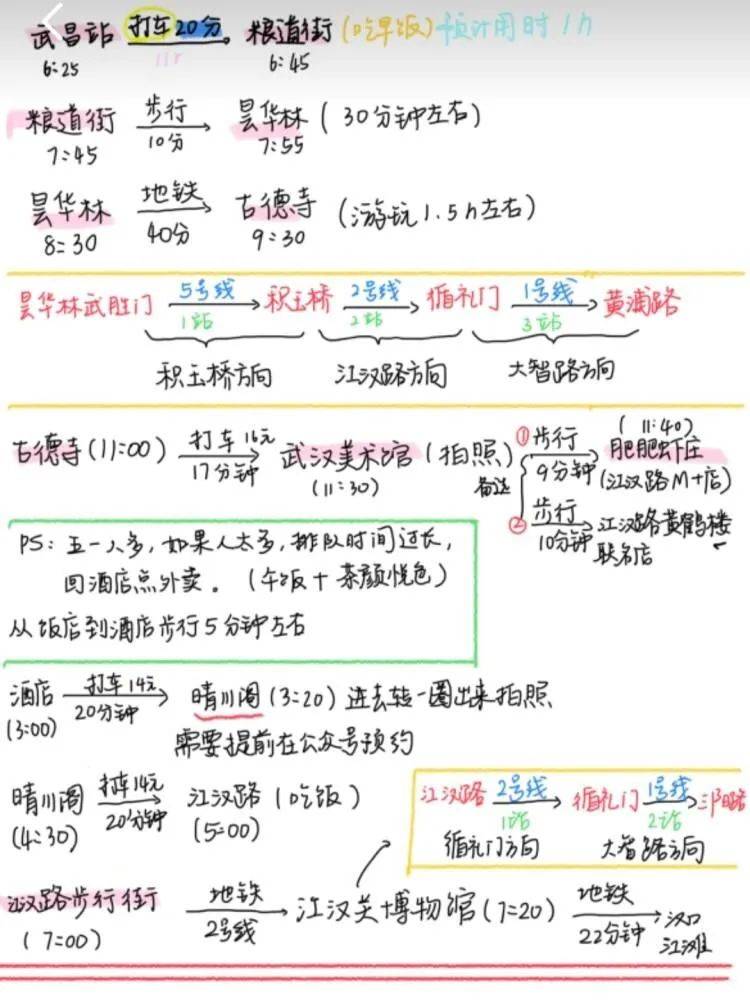 武昌站 打车20分 粮道街 (吃早饭) 预计用时1h
6:25 11r 6:45
粮道街 步行 昙华林 (30分钟左右)
7:45 10分 7:55
昙华林 地铁 古德寺 (游玩1.5h左右)
8:30 40分 9:30
昙华林武胜门 5号线 积玉桥 2号线 循礼门 1号线 黄浦路
1站 2站 3站
积玉桥方向 江汉路方向 大智路方向
古德寺(11:00) 打车16元 武汉美术馆(拍照)
17分钟 (11:30) 备选
① 步行 9分钟 肥肥虾庄 (11:40)
(江汉路M+店)
② 步行 10分钟 江汉路黄鹤楼
联名店
PS: 五一人多,如果人太多,排队时间过长,
回酒店点外卖。(午饭+茶颜悦色)
从饭店到酒店步行5分钟左右
酒店 打车14元 晴川阁(3:20)进去转一圈出来拍照
(3:00) 20分钟
需要提前在公众号预约
晴川阁 打车14元 江汉路(吃饭)
(4:30) 20分钟 (5:00)
江汉路 2号线 循礼门 1号线
1站 2站
循礼门方向 大智路方向
江汉路步行街 地铁 江汉关博物馆(7:20) 地铁 汉口
(7:00) 2号线 22分钟 江滩